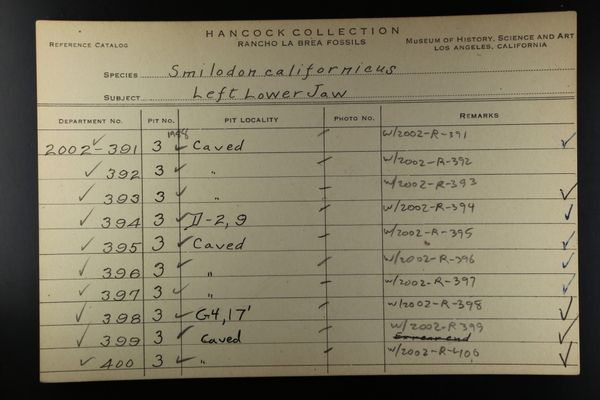 HANCOCK COLLECTION
REFERENCE CATALOG
RANCHO LA BREA FOSSILS
MUSEUM OF HISTORY, SCIENCE AND ART
LOS ANGELES, CALIFORNIA
SPECIES Smilodon californicus
SUBJECT Left Lower Jaw
DEPARTMENT NO. PIT NO. PIT LOCALITY PHOTO NO. REMARKS
2002-391 3 Caved w/2002-R-391
392 3 " w/2002-R-392
393 3 " w/2002-R-393
394 3 D-2, 9 w/2002-R-394
395 3 Caved w/2002-R-395
396 3 " w/2002-R-396
397 3 " w/2002-R-397
398 3 G4, 17' w/2002-R-398
399 3 Caved w/2002-R399
400 3 " w/2002-R-400